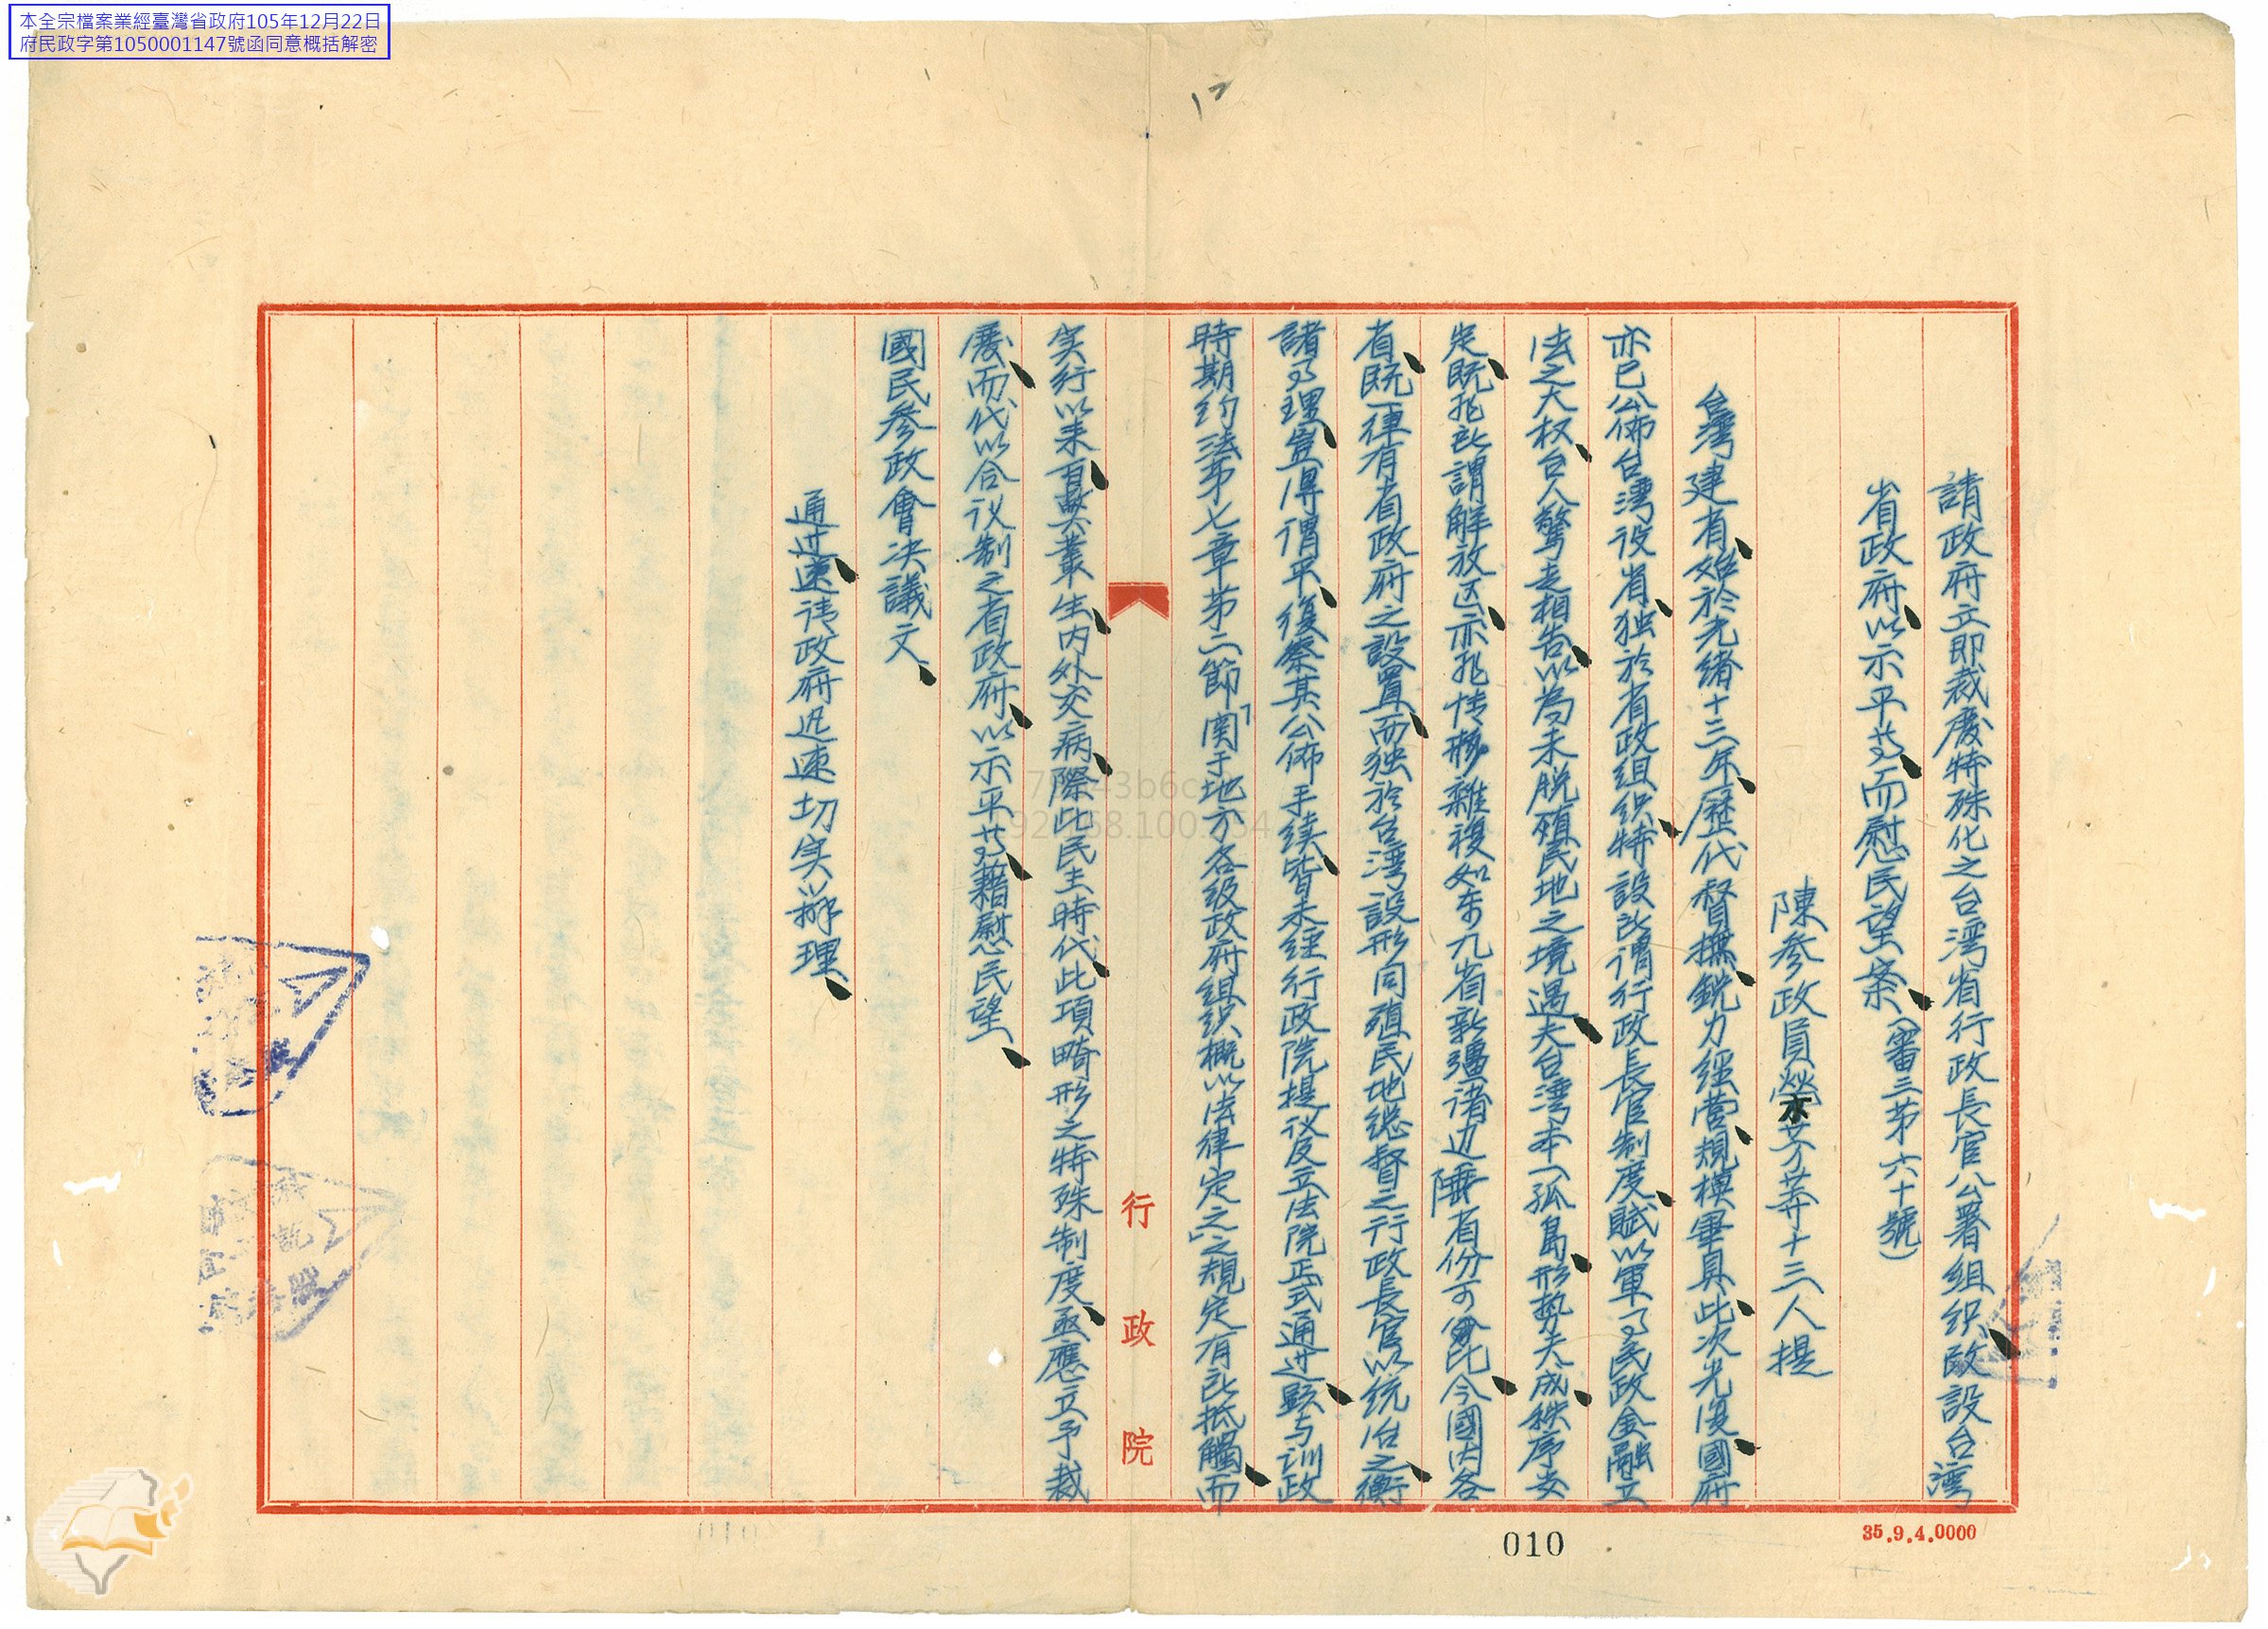 本全宗檔案業經臺灣省政府105年12月22日
府民政字第1050001147號函同意概括解密
請政府立即裁廢特殊化之台湾省行政長官公署组织改設台湾
省政府以示平等而慰民望案(審三苐六十號)
陳参政員榮芳等十三人提
台灣建省始於光緒十三年歷代督撫銳力經营規模畢具此次光復國府
亦已公佈台湾设省独於省政组织特設所謂行政長官制度賦以軍事民政金融立
法之大权台人驚走相告以為未脱殖民地之境遇夫台湾本一孤島形势天成秩序安
定既非所謂解放区亦非情形雜複如东九省新疆诸边陲省份可比今國内各
省既一律有省政府之設置而独於台湾設形同殖民地總督之行政長官以统治之衡
諸事理豈得謂平復察其公佈手续皆未经行政院提议及立法院正式通过顯与训政
時期约法苐七章苐二節「関于地方各级政府组织概以法律定之」之規定有所抵觸而
实行以来百弊叢生内外交病際此民主時代此項畸形之特殊制度亟應立予裁
廢而代以合议制之省政府以示平等藉慰民望
國民参政會決議文
通过速请政府迅速切实辦理
行政院
010
35.9.4.0000